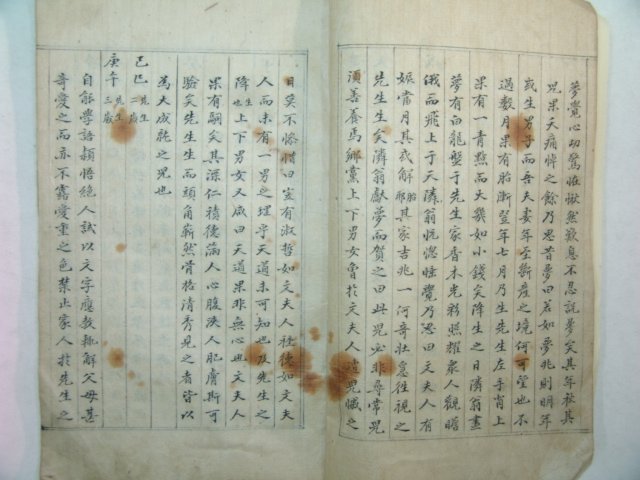 夢覺心切驚怪猷然歎息不忍說夢矣其年秋其
兒果夭痛悼之餘乃思昔夢曰若如夢兆則明年
或生男子而吾夫妻年至斷産之境何可望也不
過數月果有胎漸翌年七月乃生先生左手肖上
果有一青點而大幾如小錢矣降生之日隣翁晝
夢有白龍盤于先生家香木光彩照耀衆人觀瞻
俄而飛上于天隣翁恍惚睡覺乃思曰文夫人有
娠當月其或解胎耶其家吉兆一何奇壯急往視之
先生生矣隣翁獻夢而賀之曰此兒必非尋常兒
須善養焉鄕黨上下男女曾於文夫人遭兒慽之
日莫不慘惜曰豈有淑哲如文夫人種德如文夫
人而未有一男之理乎天道未可知也及先生之
降生也上下男女又咸曰天道果非無心也文夫人
果有嗣矣其深仁積德滿人心腹浹人肌膚斯可
驗矣先生生而頭角嶄然骨格清秀見之者皆以
爲大成就之兒也
己巳先生二歲
庚午先生三歲
自能學語穎悟絶人試以文字應敎輒解父母甚
奇愛之而亦不露愛重之色禁止家人於先生之